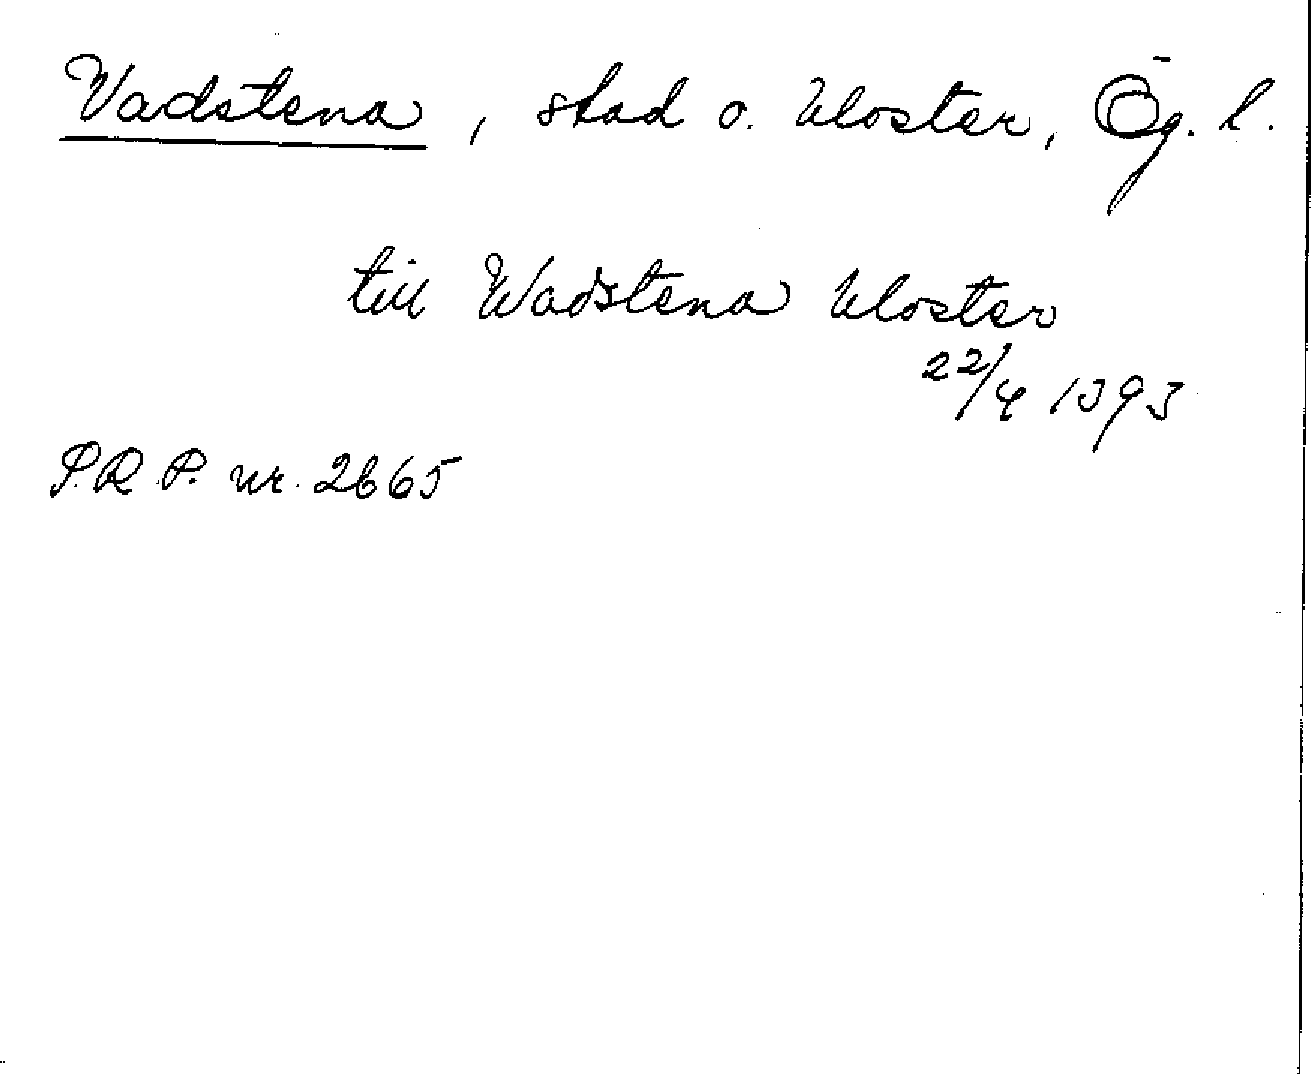 Vadstena, stad o. kloster, Ög. l.
till Wadstena kloster
22/4 1393
P.R.P. nr. 2665